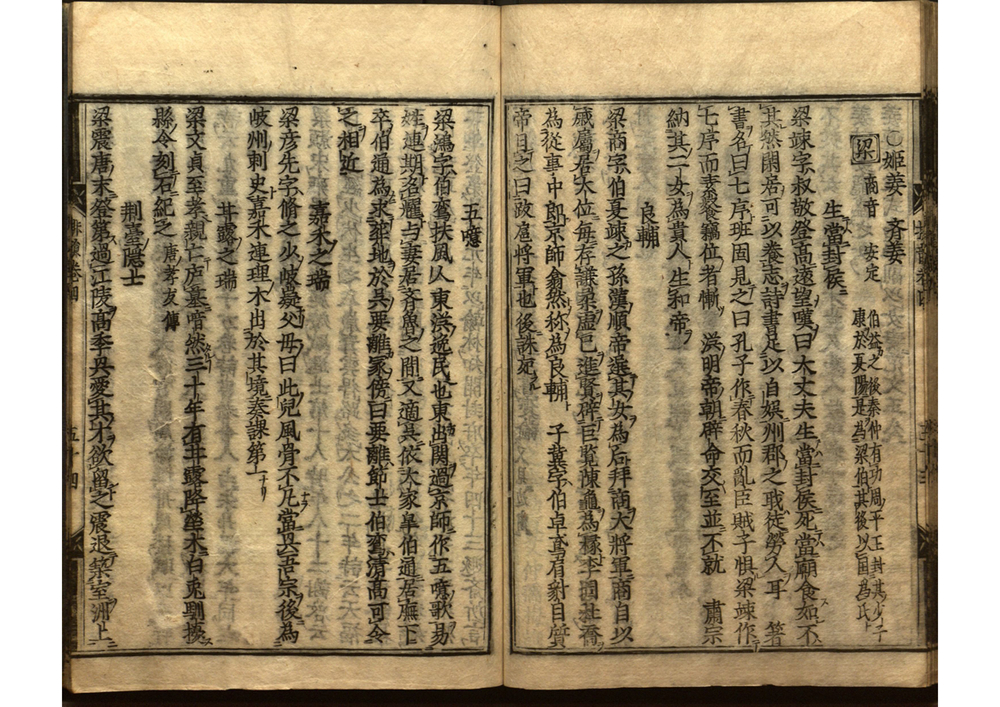 ○姬姜　齐姜
梁　商音　安定　伯益之後秦仲有功周平王封其少子
康於夏陽是為梁伯其後以国為氏
生當封侯
梁竦字叔敬登高遠望嘆曰大丈夫生當封侯死當廟食如不
其然閑居可以養志詩書足以自娯州郡之職徒勞人耳　著
書名曰七序班固見之曰孔子作春秋而亂臣賊子惧梁竦作
七序而素餐竊位者慚　漢明帝朝辟命交至並不就　肅宗
納其二女為貴人生和帝
良輔
梁商字伯夏竦之孫漢順帝選其女為后拜商大將軍商自以
戚屬居大位每存謙柔虛己進賢辟巨覧陳龜為掾李固杜喬
為從事中郎京師翕然称為良輔　子冀字伯卓鳶肩豺目質
帝目之曰跋扈將軍也後誅死
五噫
梁鴻字伯鸞扶風人東漢逸民也東出関過京師作五噫歌易
姓連期名燿与妻居齐魯之間又適呉依大家皐伯通居廡下
卒伯通為求葬地於呉要離冢傍曰要離節士伯鸞清高可令
之相近
嘉禾之瑞
梁彦先字脩之少岐嶷父母曰此兒風骨不凡當興吾宗後為
岐州刺史嘉禾連理木出於其境奏課第一
甘露之瑞
梁文貞至孝親亡庐墓喑然三十年有甘露降塋木白兎馴擾
縣令刻石紀之　唐孝友傳
荆臺隱士
梁震唐末登第過江陵高季興愛其才欲留之震退築室洲上
五十四